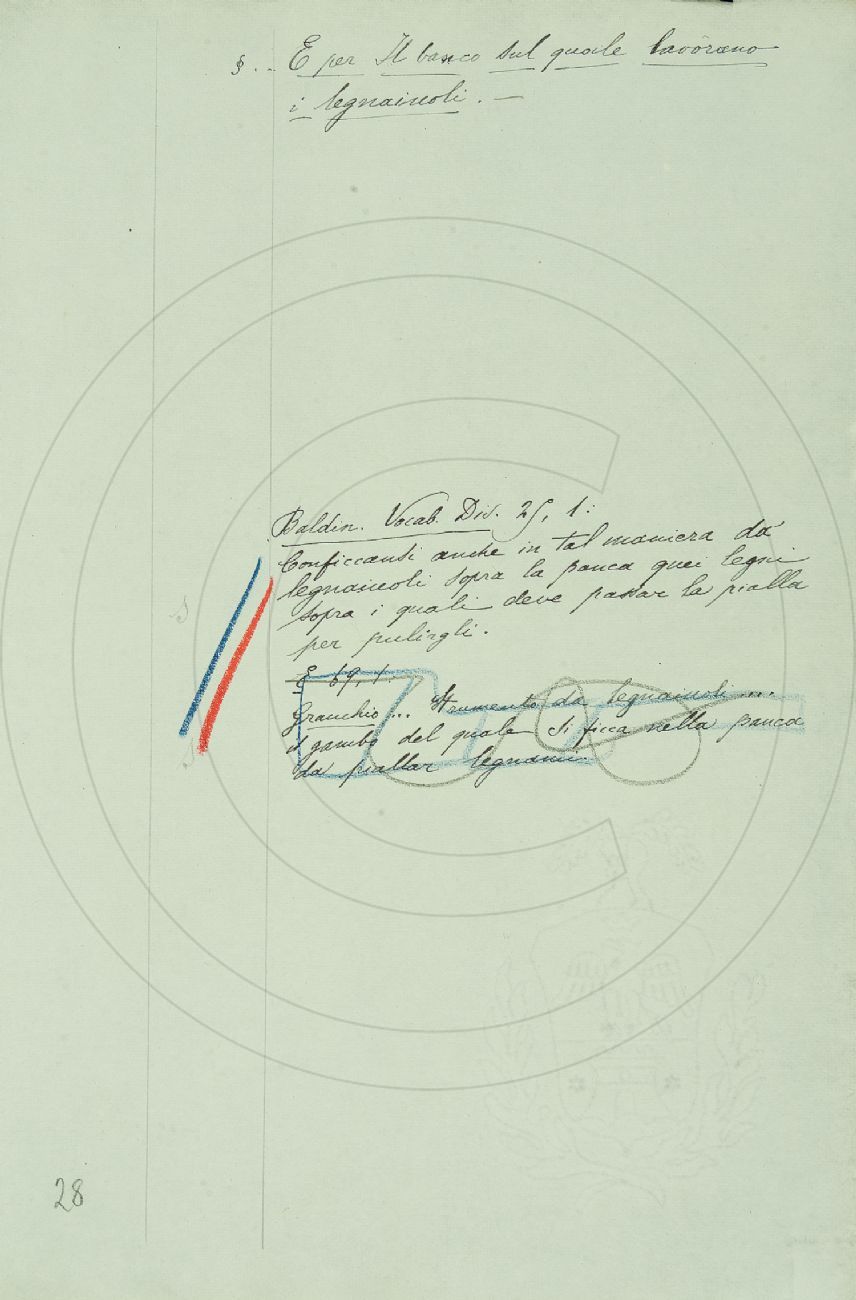 §. . E per Il banco sul quale lavorano
i legnaiuoli. —
Baldin. Vocab. Dis. 25, 1:
Conficcansi anche in tal maniera da'
legnaiuoli sopra la panca quei legni
sopra i quali deve passar la pialla
per pulirgli.
E 69, 1.
Granchio ... Strumento da legnaiuoli ....
il gambo del quale si ficca nella panca
da piallar legnami.
28